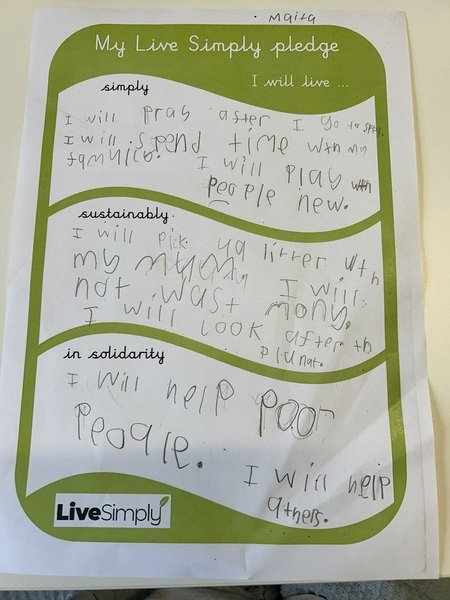 Maita
My Live Simply pledge
I will live ...
simply
I will pray after I go to
I will spend time with my
I will play with
people new.
sustainably.
I will pick up litter with
my
I will
not wast mony.
I will look after th
plunat.
in solidarity
I will help poor
People.
I will help
others.
LiveSimply